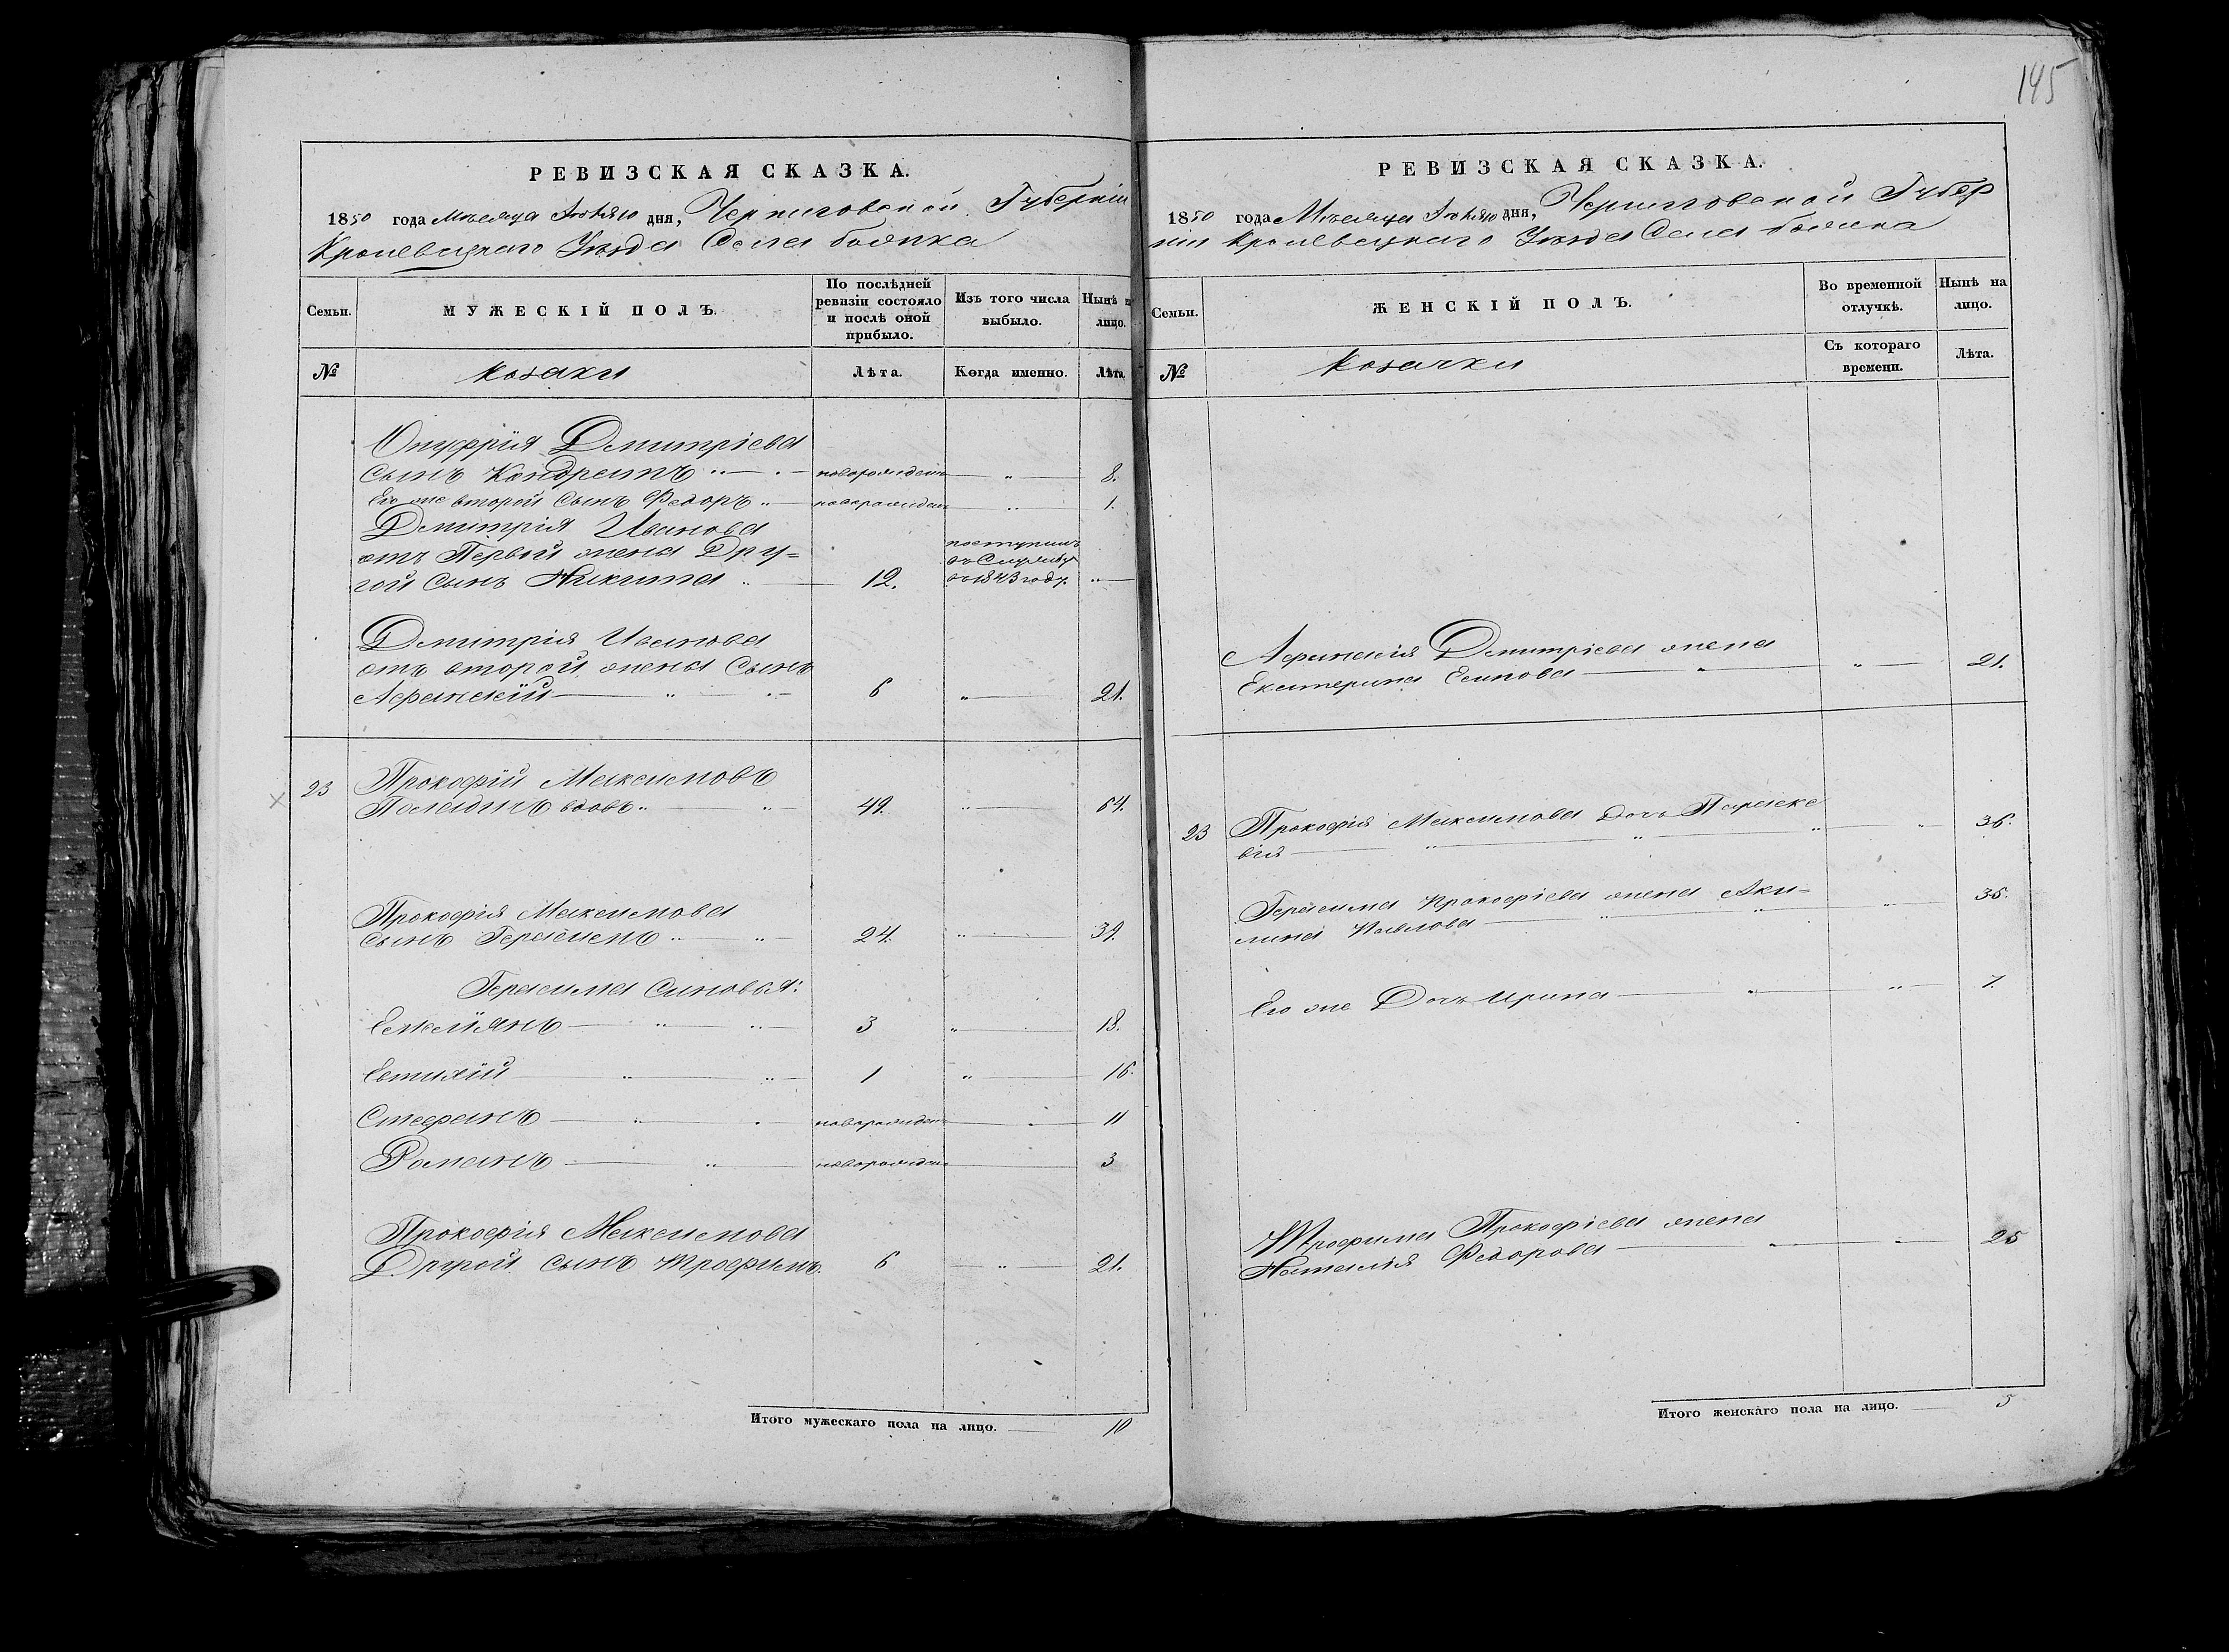 145
РЕВИЗСКАЯ СКАЗКА.
1850 года Мѣсяца Июля 10 дня, Черниговской Губерніи
Кролевецкаго Уѣзда Села Боянка
Семьи.
МУЖЕСКІЙ ПОЛЪ.
По послѣдней ревизіи состояло и послѣ оной прибыло.
Изъ того числа выбыло.
Нынѣ на лицо.
№
Козаки
Лѣта.
Когда именно.
Лѣта.
Онуфрія Дмитріева
сынъ Кондратъ новорожденъ 8.
Его же второй Сынъ Федоръ новорожденъ 1.
Дмитрія Иванова
отъ Первой жены Дру=
гой Сынъ Никита 12. поступилъ въ Службу въ 1843 году.
Дмитрія Иванова
отъ второй жены Сынъ
Афанасій 6 21.
23 Прокофій Максимовъ
вдовъ 49. 64.
Прокофія Максимова
сынъ Герасимъ 24. 39.
Герасима Синовья:
Емеліянъ 3 18.
Евтихій 1 16.
Стефанъ новорожденъ 11
Романъ новорожденъ 3
Прокофія Максимова
Другой сынъ Трофимъ 6 21.
Итого мужескаго пола на лицо. 10
РЕВИЗСКАЯ СКАЗКА.
1850 года Мѣсяца Июля 10 дня, Черниговской Губер
ніи Кролевецкаго Уѣзда Села Боянка
Семьи.
ЖЕНСКІЙ ПОЛЪ.
Во временной отлучкѣ.
Нынѣ на лицо.
№
Козачки
Съ котораго времени.
Лѣта.
Афанасія Дмитріева жена
Екатерина Есипова 21.
23 Прокофія Максимова дочь Параске
вія 36.
Герасима Прокофіева жена Аки=
лина Павлова 35.
Его же Дочь Ирина 7.
Трофима Прокофіева жена
Наталія Федорова 25
Итого женскаго пола на лицо. 5